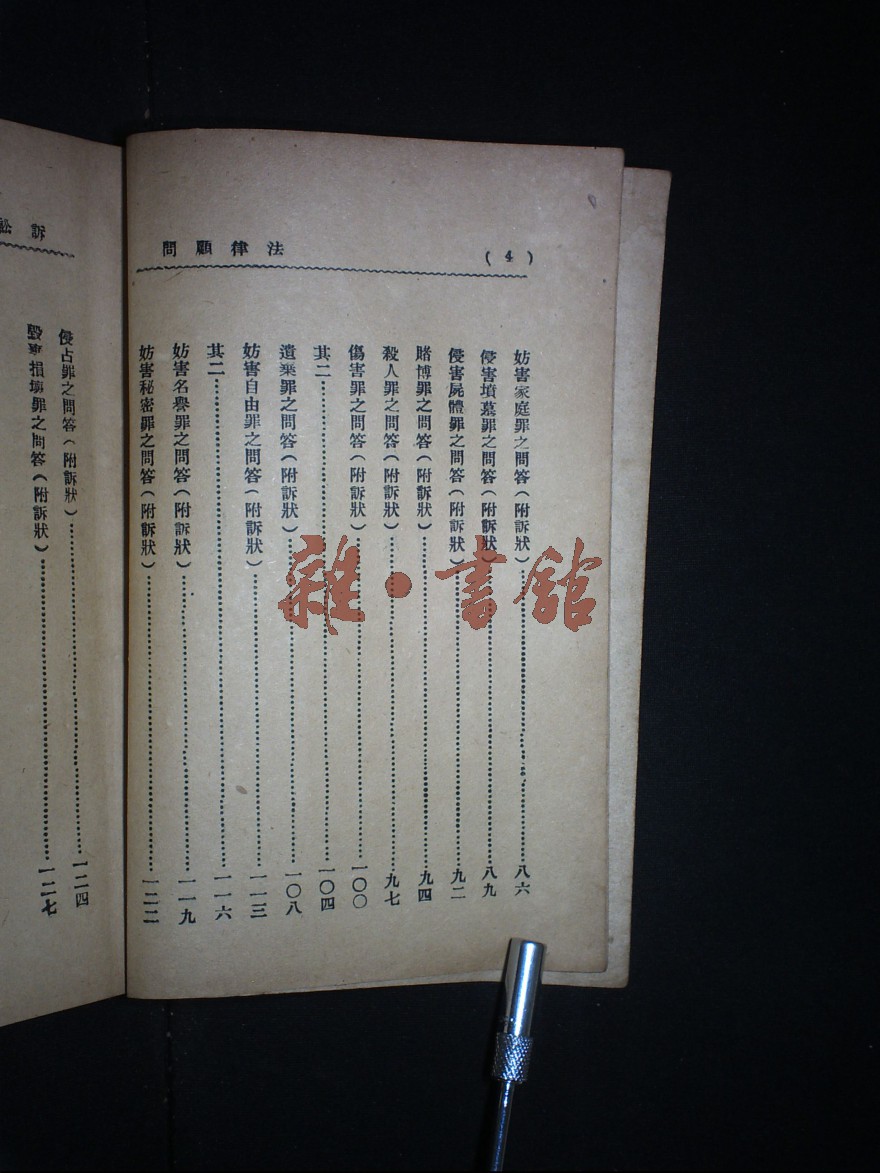 法律顧問
(4)
妨害家庭罪之問答(附訴狀)⋯⋯八六
侵害墳墓罪之問答(附訴狀)⋯⋯八九
侵害屍體罪之問答(附訴狀)⋯⋯九二
賭博罪之問答(附訴狀)⋯⋯九四
殺人罪之問答(附訴狀)⋯⋯九七
傷害罪之問答(附訴狀)⋯⋯一〇〇
其二⋯⋯一〇四
遺棄罪之問答(附訴狀)⋯⋯一〇八
妨害自由罪之問答(附訴狀)⋯⋯一一三
其二⋯⋯一一六
妨害名譽罪之問答(附訴狀)⋯⋯一一九
妨害秘密罪之問答(附訴狀)⋯⋯一二二
訴訟
侵占罪之問答(附訴狀)⋯⋯一二四
毀棄損壞罪之問答(附訴狀)⋯⋯一二七
雜·書館